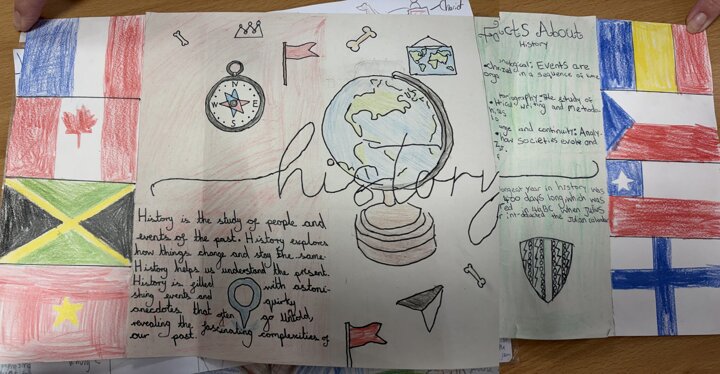 Chariot
history
History is the study of people and
events of the past. History explores
how things change and stay the same.
History helps us understand the present.
History is filled with astoni-
shing events and quirky
anecdotes that often go untold,
revealing the fascinating complexities of
our past.
N
W E
S
Facts About
History
Events are
in a sequence of time
the study of
writing and Methods
and continuity: Analy-
how societies evolve and
longest year in history was
days long which was
in 46BC when Julius
introduced the Julian calendar